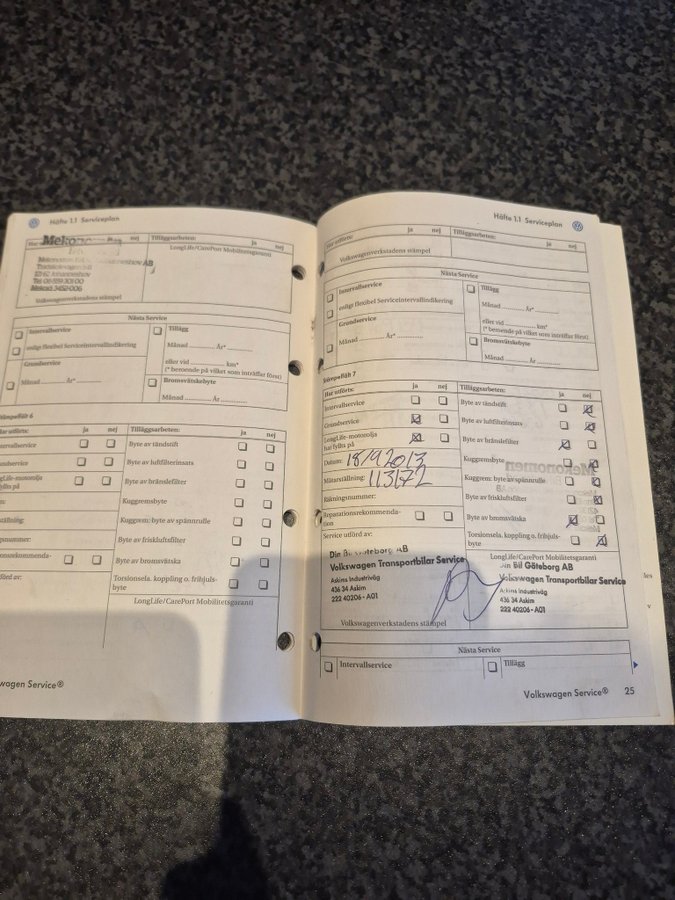 Häfte 1.1 Serviceplan
Mekonomen
Tilläggsarbeten:
ja
nej
LongLife/CarePort Mobilitetsgaranti
Volkswagenverkstadens stämpel
Nästa Service
Intervallservice
enligt flexibel Serviceintervallindikering
Grundservice
Månad ............ År* ............
Tillägg
Månad ............ År* ............
eller vid ............ km*
(* beroende på vilket som inträffar först)
Bromsvätskebyte
Månad ............ År ............
Stämpelfält 6
Har utförts:
ja
nej
Tilläggsarbeten:
ja
nej
Byte av tändstift
Byte av luftfilterinsats
Byte av bränslefilter
Kuggremsbyte
Kuggrem: byte av spännrulle
Byte av friskluftsfilter
Byte av bromsvätska
Torsionsela. koppling o. frihjuls-
byte
LongLife/CarePort Mobilitetsgaranti
wagen Service®
Häfte 1.1 Serviceplan
Har utförts:
ja
nej
Tilläggsarbeten:
Volkswagenverkstadens stämpel
Nästa Service
Intervallservice
enligt flexibel Serviceintervallindikering
Grundservice
Månad ............ År* ............
Tillägg
Månad ............ År* ............
eller vid ............ km*
(* beroende på vilket som inträffar först)
Bromsvätskebyte
Månad ............ År ............
Stämpelfält 7
Har utförts:
ja
nej
Intervallservice
Grundservice
LongLife-motorolja
har fyllts på
Datum: 18/9 2013
Mätarställning: 113172
Räkningsnummer:
Reparationsrekommenda-
tion
Service utförd av:
Din Bil Göteborg AB
Volkswagen Transportbilar Service
Askims Industriväg
436 34 Askim
222 40206 - A01
Volkswagenverkstadens stämpel
Tilläggsarbeten:
ja
nej
Byte av tändstift
Byte av luftfilterinsats
Byte av bränslefilter
Kuggremsbyte
Kuggrem: byte av spännrulle
Byte av friskluftsfilter
Byte av bromsvätska
Torsionsela. koppling o. frihjuls-
byte
LongLife/CarePort Mobilitetsgaranti
Din Bil Göteborg AB
Volkswagen Transportbilar Service
Askims Industriväg
436 34 Askim
222 40206 - A01
Nästa Service
Intervallservice
Tillägg
Volkswagen Service® 25